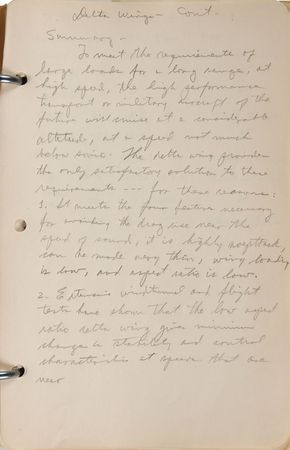 Delta Wings - Cont.
Summary -
To meet the requirements of
large loads for a long range, at
high speed, the high performance
transport or military aircraft of the
future will cruise at a considerable
altitude, at a speed not much
below sonic. The delta wing provides
the only satisfactory solution to these
requirements --- for these reasons:
1. It meets the four features necessary
for avoiding the drag rise near the
speed of sound, it is highly sweptback,
can be made very thin, wing loading
is low, and aspect ratio is low.
2. Extensive windtunnel and flight
tests have shown that the low aspect
ratio delta wing gives minimum
change in stability and control
characteristics at speeds that are
near